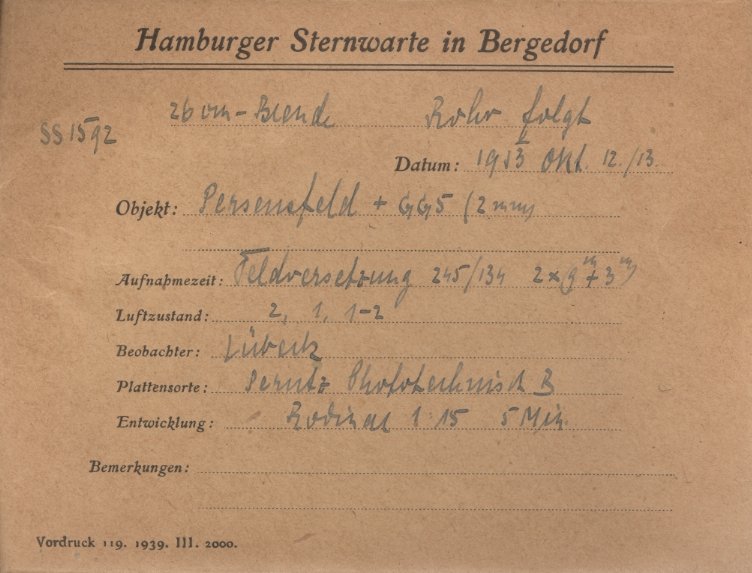 Hamburger Sternwarte in Bergedorf
26 cm - Blende Rohr folgt
SS 1592
Datum: 1953 Okt. 12./13.
Objekt: Perseusfeld + GG5 (2 mm)
Aufnahmezeit: Feldversetzung 245/134 2 × (9ᵐ + 3ᵐ)
Luftzustand: 2, 1, 1-2
Beobachter: Lübeck
Plattensorte: Perutz Phototechnisch B
Entwicklung: Rodinal 1:15 5 Min.
Bemerkungen:
Vordruck 119. 1939. III. 2000.